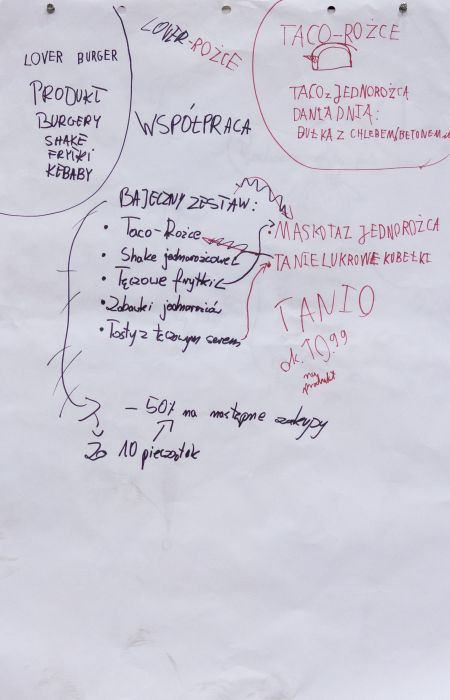 LOVER-ROŻCE
LOVER BURGER
PRODUKT
BURGERY
SHAKE
FRYTKI
KEBABY
TACO-ROŻCE
TACO z JEDNOROŻCA
DANIA DNIA:
BUŁKA Z CHLEBEM/BETONEM
WSPÓŁPRACA
BAJECZNY ZESTAW:
• Taco-Rożce
• Shake jednorożcowe
• Tęczowe frytki
• Zabawki
• Tosty z tęczowym serem
• MASKOTA Z JEDNOROŻCA
• TANIE LUKROWE KUBEŁKI
TANIO
ok. 10,99
na produkt
- 50% na następne zakupy
Zb 10 pieczątek